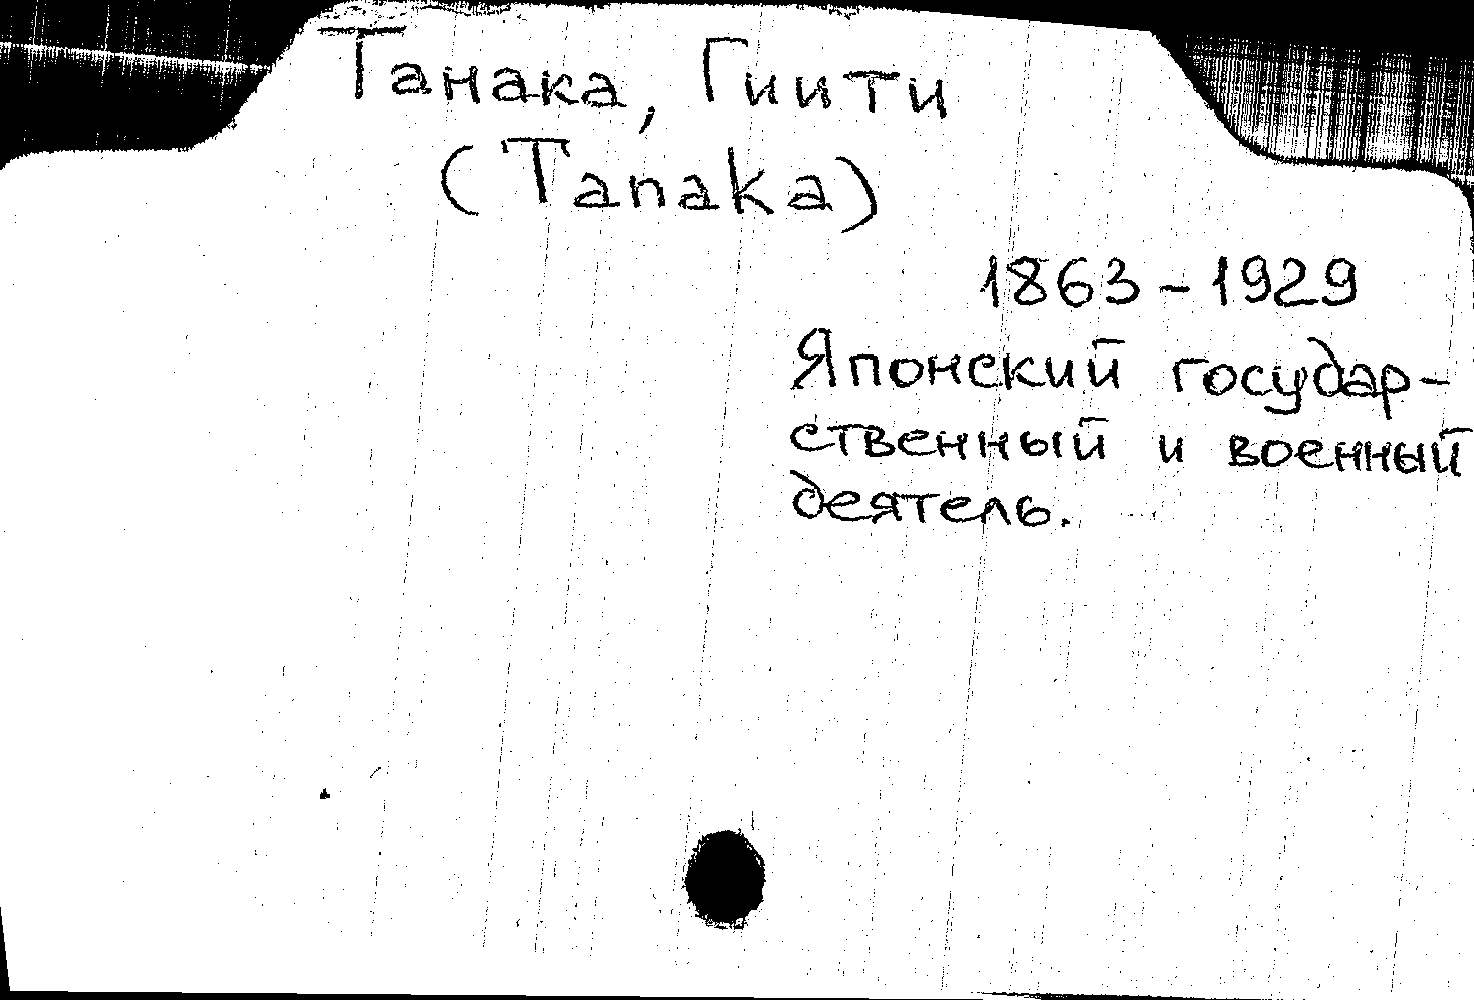 Танака, Гиити
(Tanaka)
1863-1929
Японский государ-
ственный и военный
деятель.